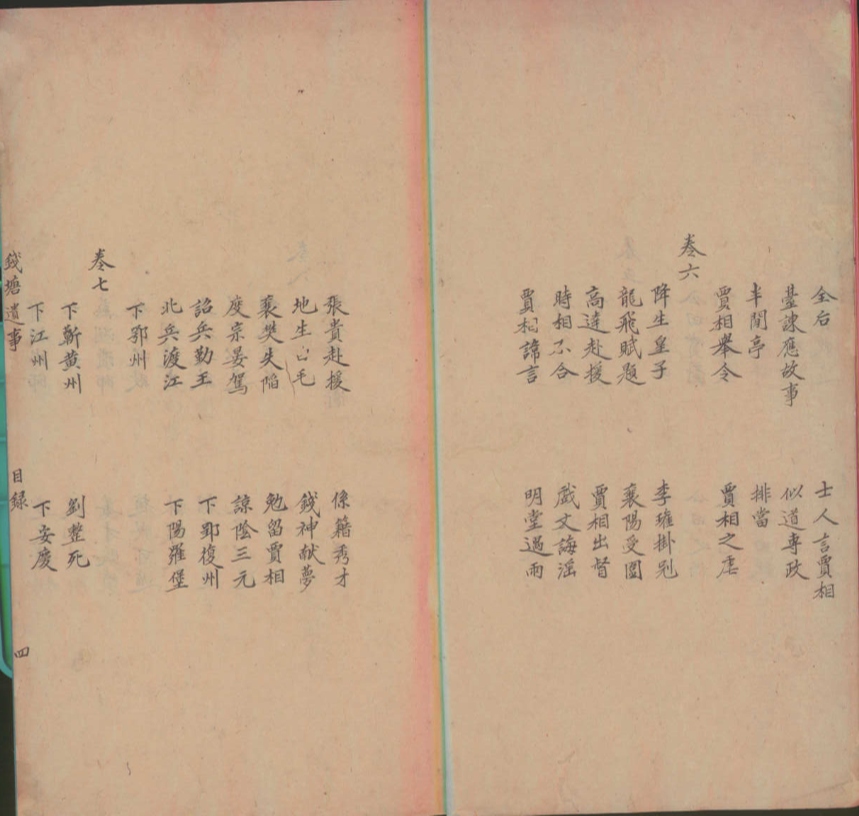 全后 士人言賈相
臺諫應故事 似道專政
半閒亭 排當
賈相舉令 賈相之虐
卷六
降生皇子 李璮掛冠
龍飛賦題 襄陽受圍
高達赴援 賈相出督
時相不合 戲文誨淫
賈相諱言 明堂遇雨
張貴赴援 係籍秀才
地生白毛 錢神献夢
襄樊失陷 勉留賈相
度宗晏駕 諒陰三元
詔兵勤王 下郢復州
北兵渡江 下陽羅堡
下鄂州
卷七
下蘄黄州 劉整死
下江州 下安慶
錢塘遺事 目録 四